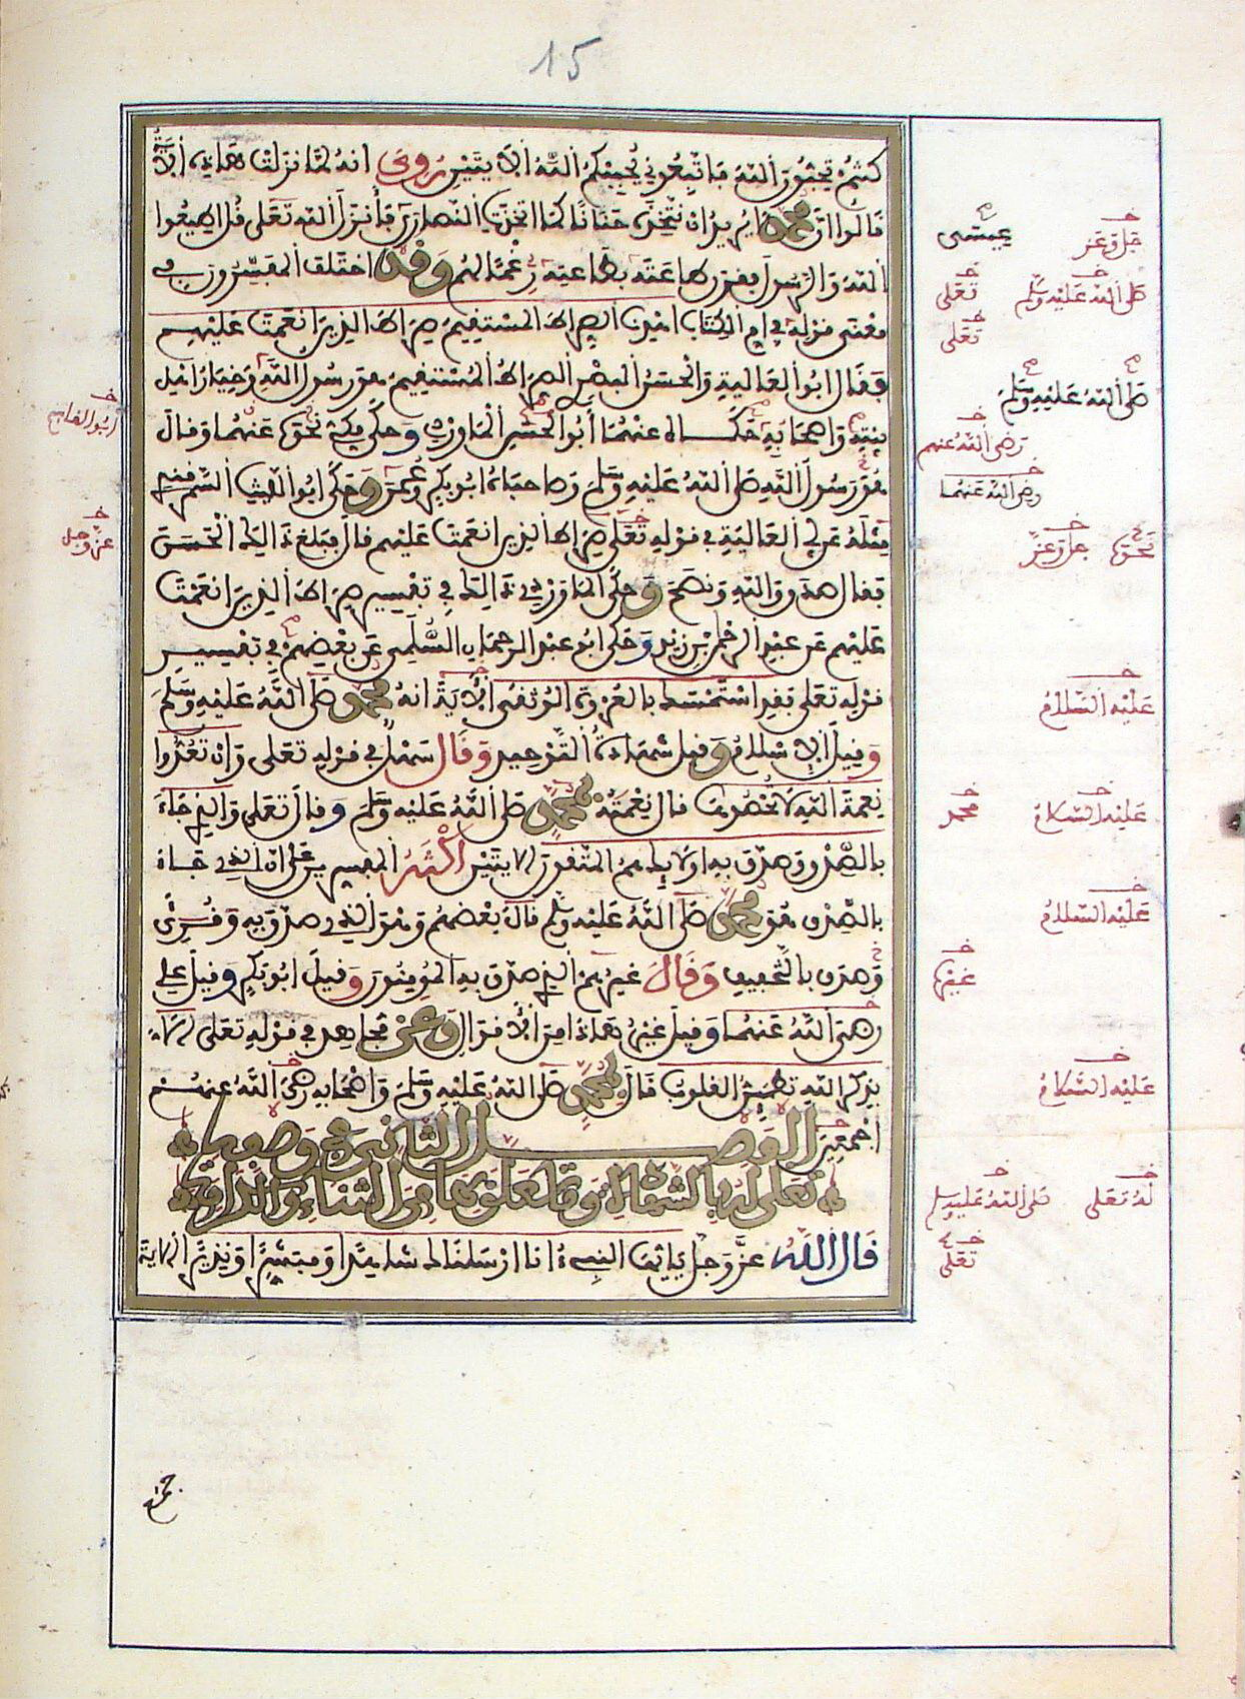 15
كنتم تحبون الله فاتبعوني يحببكم الله الايتين روي انه لما نزلت هاذه الاية
قالوا ان محمدا يريد ان نتخذه حنانا كما اتخذت النصارى فأنزل الله تعلى قل اطيعوا
الله والرسول فقرن طاعته بطاعته رغما لهم وقد اختلف المفسرون في
معنى قوله في ام الكتاب اهدنا الصراط المستقيم صراط الذين انعمت عليهم
فقال ابو العالية والحسن البصري الصراط المستقيم هو رسول الله وخيار اهل
بيته واصحابه حكاه عنهما أبو الحسن الماوردي وحكى مكي نحوه عنهما وقال
هو رسول الله صلى الله عليه وسلم وصاحباه ابو بكر وعمر وحكى ابو الليث السمرقندي
مثله عن ابي العالية في قوله تعلى صراط الذين انعمت عليهم قال فبلغ ذالك الحسن
فقال صدق والله ونصح وحكى الماوردي ذالك في تفسير صراط الذين انعمت
عليهم عن عبد الرحمن بن زيد وحكى ابو عبد الرحمان السلمي عن بعضهم في تفسير
قوله تعلى فقد استمسك بالعروة الوثقى الاية انه محمد صلى الله عليه وسلم
وقيل الاسلام وقيل شهادة التوحيد وقال سهل في قوله تعلى وان تعدوا
نعمة الله لا تحصوها قال نعمته بمحمد صلى الله عليه وسلم وقال تعلى والذي جاء
بالصدق وصدق به اولايك هم المتقون الايتين اكثر المفسرين على ان الذي جاء
بالصدق هو محمد صلى الله عليه وسلم قال بعضهم وهو الذي صدق به وقرئ
وصدق بالتخفيف وقال غيرهم الذي صدق به المومنون وقيل ابو بكر وقيل علي
رضي الله عنهما وقيل غير هاذا من الاقوال وعن مجاهد في قوله تعلى الا
بذكر الله تطمئن القلوب قال بمحمد صلى الله عليه وسلم واصحابه رضي الله عنهم
اجمعين الفصل الثاني في وصفه
تعلى له بالشهادة وما يتعلق بها من الثناء والكرامة
قال الله عز وجل يايها النبيء انا ارسلناك شاهدا ومبشرا ونذيرا الاية
عيسى
جل وعز
صلى الله عليه وسلم
تعلى
تعلى
صلى الله عليه وسلم
رضي الله عنهم
رضي الله عنهما
نحوه
جل وعز
عليه السلام
عليه السلام
محمد
عليه السلام
غيرها
عليه السلام
له تعلى
صلى الله عليه وسلم
تعلى
عز وجل